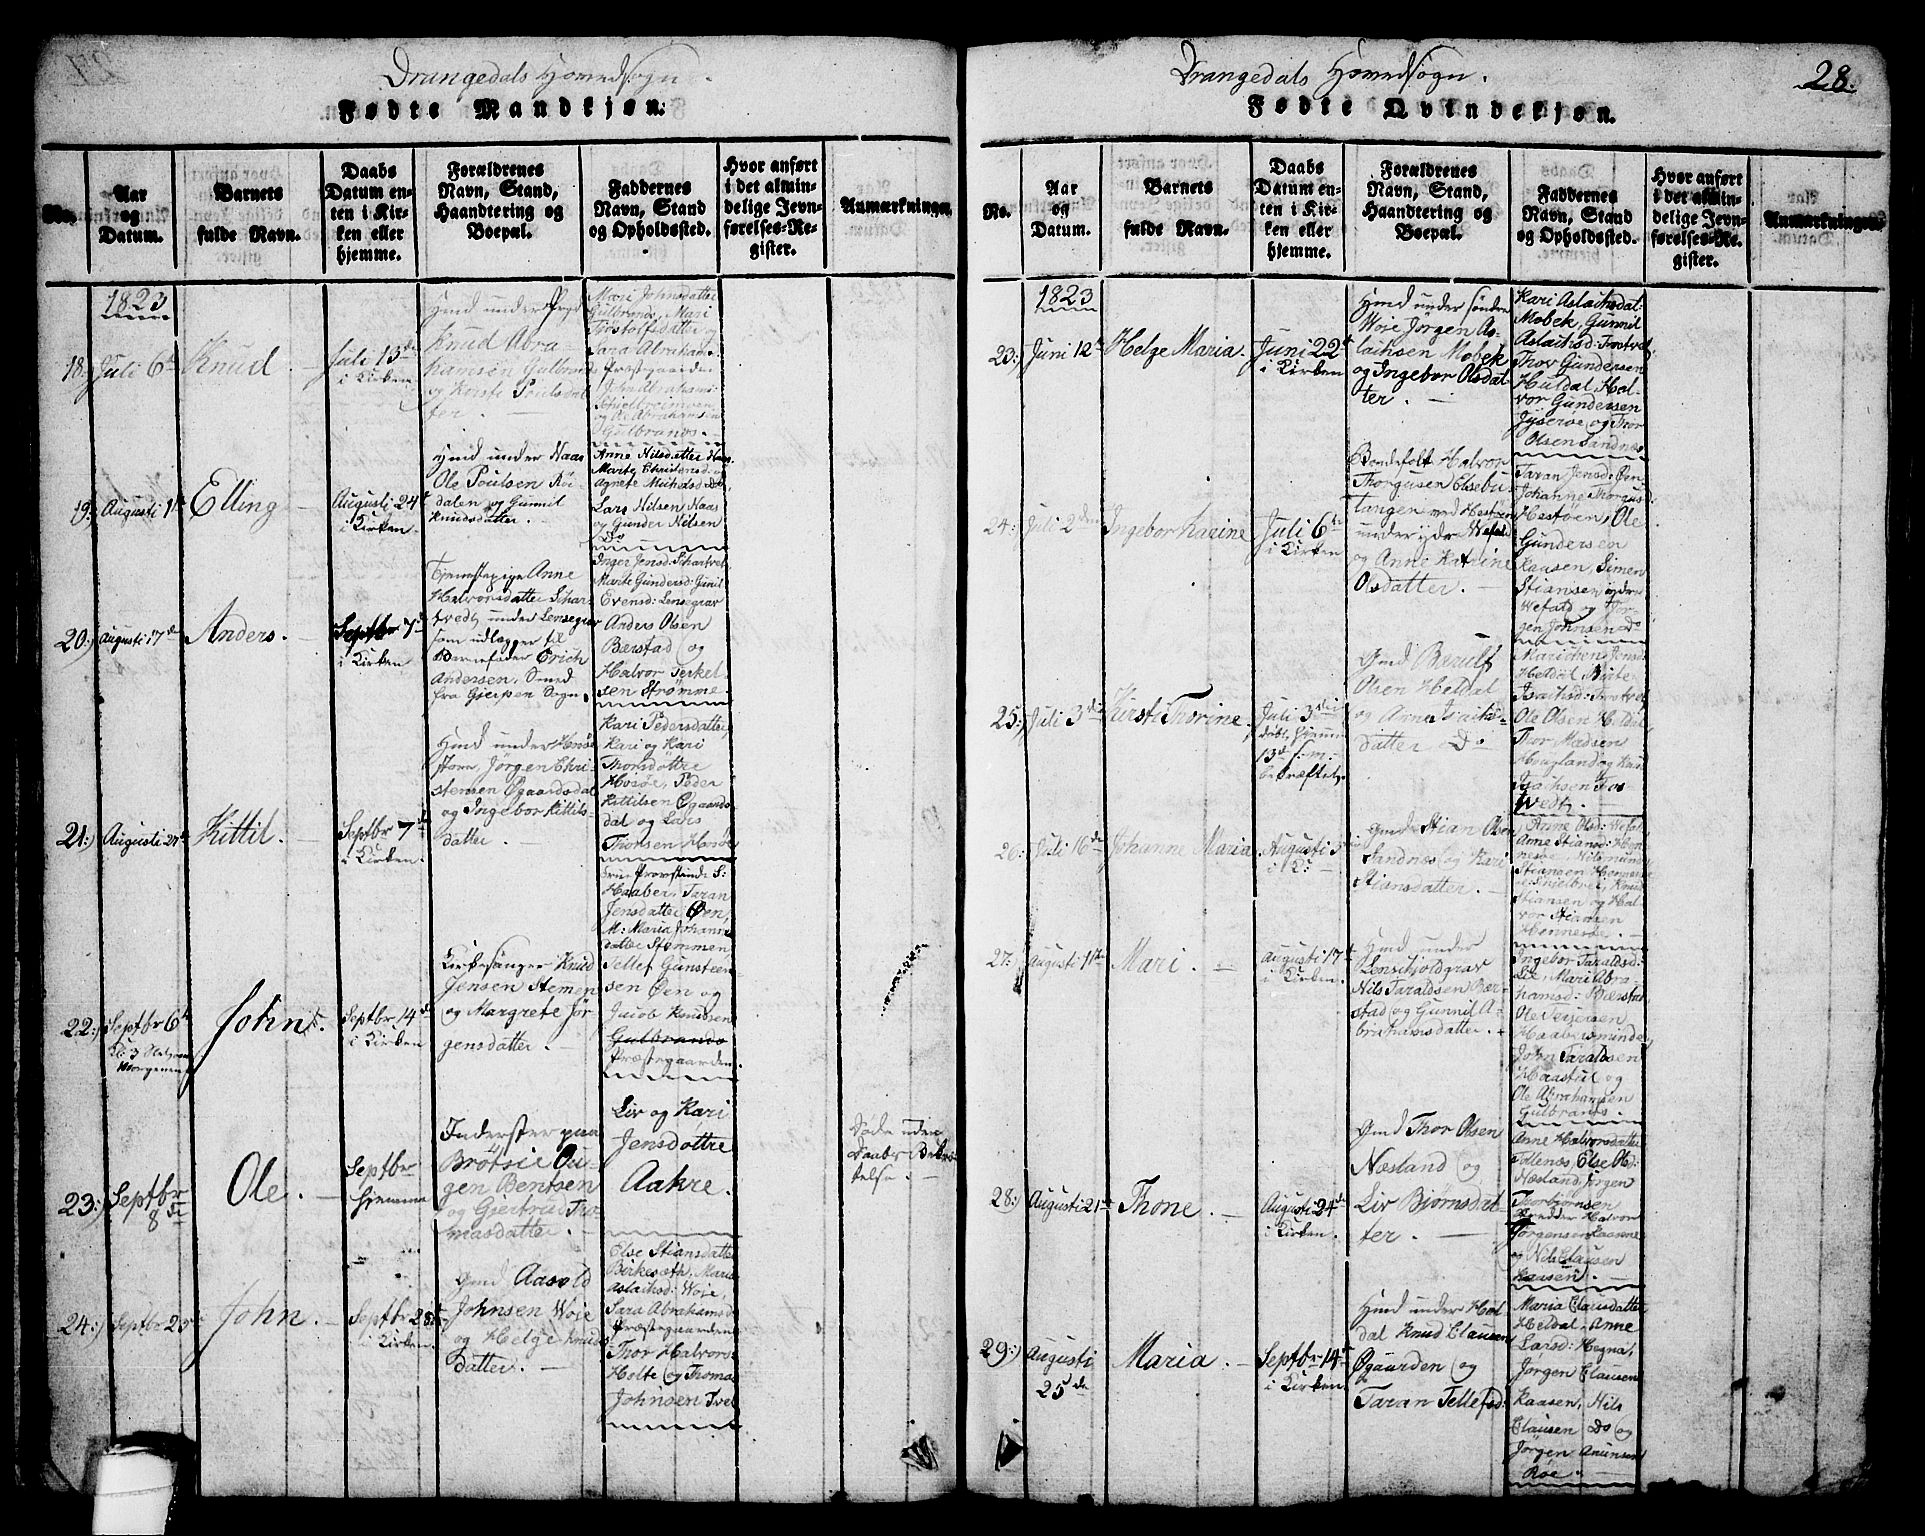 Drangedals Hovedsogn.
Fødte Mandkjøn:
No.
Aar
og
Datum.
Barnets
fulde Navn.
Daabs
Datum en-
ten i Kir-
ken eller
hjemme.
Forældrenes
Navn, Stand,
Haandtering og
Boepæl.
Faddernes
Navn, Stand
og Opholdssted.
Hvor anført
i det almin-
delige Jevn-
førelses-Re-
gister.
Anmærkninger.
1823
18.
Juli 6te
Knud
Juli 13de
i Kirken
Hmd under
Knud Abra-
hamsen Gulbrands
og Kirsti Poulsdat
ter.
Mari Johnsdatter
Gulbrands, Mari
datter og
Sara Abrahams
Præstegaarden
John Abrahams
og Ole Abrahamsen
Gulbrands.
19.
Augusti 1te
Elling
Augusti 24
i Kirken
Hmd under Naas
Ole Poulsen Rø-
dalen og Gunnil
Knudsdatter.
Anne Nilsdatter Naas
Marte Christensd: og
Agnete Michelsd: Do,
Lars Nilsen Naas
og Gunder Nilsen
Do
20.)
Augusti 17de
Anders.
Septbr 7de
i Kirken
Tjenestepige Anne
Halvorsdatter Skar-
tvedt under Lensegrav
som udlægger til
Barnefader Erich
Andersen, Smed
fra Gjerpen Sogn.
Inger Jensd: Skartvet
Marte Gundersd: Gunil
Evensd: Lensegrav
Anders Olsen
Bærstad og
Halvor Terkel-
sen Strømme.
21.)
Augusti 27de
Kittil.
Septbr 7de
i Kirken
Hmd under Hosøe
Jørgen Chri-
stensen Øgaardsdal
og Ingebor Kittils-
datter.
Kari Pedersdatter,
Kari og Kari
Thorsdøttre
Hosøe, Peder
Kittilsen Øgaards
dal og Lars
Thorsen Hosøe
22.)
Septbr 6te
Kl: 3 Slet om
Morgenen
John.
Septbr 14de
i Kirken
Kirkesanger Knud
Jensen Stemen
og Margrete Jør
gensdatter.
Haaber, Taran
Jensdatter Øen,
M: Maria Johanne
datter Stemmen
Tellef Gunsteen-
sen Øen og
Jacob Knudsen
Gulbrands
Præstegaarden.
23.)
Septbr
8de
Ole.
Septbr
hjemme
Inderster paa
Brøtsie Ou-
gen Bentsen
og Gjertrud Tho
masdatter.
Liv og Kari
Jensdøttre
Aakre.
Døde uden
Daabs Bekræf-
telse.
24.)
Septbr 25de
John.
Septbr 28de
i Kirken.
Gmd Aasold
Johnsen Woje
og Helge Knuds
datter.
Else Stiansdatter
Birkesæth, Mari
Aslachsd: Woje,
Sara Abrahamsd
Præstegaarden
Thor Halvors:
Holte og Thomas
Johnsen Tvet
Drangedals Hovedsogn.
28.
Fødte Qvindekjøn.
No.
Aar
og
Datum.
Barnets
fulde Navn.
Daabs
Datum en-
ten i Kir-
ken eller
hjemme.
Forældrenes
Navn, Stand,
Haandtering og
Boepæl.
Faddernes
Navn, Stand
og Opholdssted.
Hvor anført
i det almin-
delige Jevn-
førelses-Re-
gister.
Anmærkninger.
1823
23.)
Juni 12te
Helge Maria.
Juni 22de
i Kirken
Hmd under søndre
Woje Jørgen As-
lachsen Mobek
og Ingebor Olsdat
ter.
Kari Aslachsdat:
Mobek, Gunnil
Aslachsd: Tvetvet
Thor Gundersen
Huldal, Hal-
vor Gundersen
og Thor
Olsen Sandnæs
24.)
Juli 2den
Ingebor Karine
Juli 6te
i Kirken
Bondefolk Halvor
Thorgusen Elsebu-
tangen
under ydre Wefald
og Anne Katrine
Olsdatter.
Taran Jensd: Øen
Johanne Thorgus
Hestøen, Ole
Gundersen
Kaasen, Simen
Stiansen ydre
Wefald og Jør-
gen Johnsen Do
25.)
Juli 3de
Kirsti Thorine
Juli 3de
døbt hjemme
13de
bekræftet.
Gmd Bærulf
Olsen Heldal
og Anne Isachs-
datter Do
Marichen Jensd:
Heldal, Birte
Isachsd: Tvetvet
Ole Olsen Heldal,
Thor Madsen
Hougland og Knud
Isachsen Tos
vedt.
26.)
Juli 16de
Johanne Maria
Augusti 3de
i K:
Gmd Stian Olsen
Sandnæs og Kari
Stiansdatter.
Anne Olsd: Wefal
Anne Stiansd: Hen-
nesøe, Nils
Stiansen
Knud
Stiansen og Hal-
vor Stiansen
Hennesøe.
27.)
Augusti 11te
Mari.
Augusti 17de
i Kirken.
Hmd under
Lensiholdgrav
Nils Taraldsen Bær-
stad og Gunnil A-
brahamsdatter.
Ingebor Taraldsd:
Lie, Mari Abra
hamsd: Bærstad
Ole Terjersen
Haabersminde,
John Taraldsen
Haastul og
Ole Abrahamsen
Gulbrands.
28.)
Augusti 21de
Thone.
Augusti 24de
i Kirken.
Gmd Thor Olsen
Næsland og
Liv Bjørnsdat-
ter.
Anne Halvorsdatter
Tollenæs, Else Ol:
Næsland, Jørgen
Thorbjørnsen
Halvor
Jørgensen Kaasene
og Nils Clausen
Kaasen.
29.)
Augusti
25de
Maria.
Septbr 14de
i Kirken.
Hmd under Hel
dal Knud Clausen
Øgaarden og
Taran Tellefsd:
Maria Clausdatter
Heldal, Anne
Larsd: Hegna,
Jørgen Clausen
Kaasen, Nils
Clausen Do og
Jørgen Anunsen
Røe.